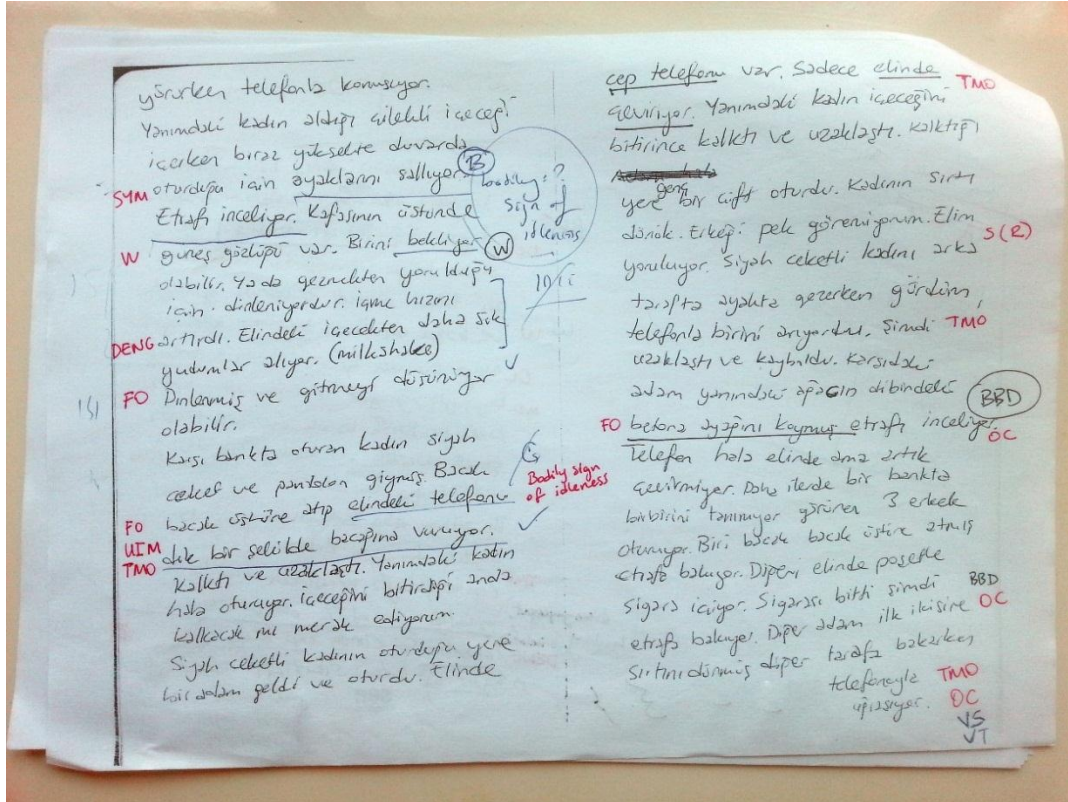 yürürken telefonla konuşuyor.
Yanımdaki kadın aldığı çilekli içeceği
içerken biraz yüksekte duvarda
SYM oturduğu için ayaklarını sallıyor. B
Etrafı inceliyor. Kafasının üstünde
W güneş gözlüğü var. Birini bekliyor W
olabilir. Ya da gezmekten yorulduğu
için dinleniyordur. içme hızını
DENG artırdı. Elindeki içecekten daha sık
yudumlar alıyor. (milkshake)
FO Dinlenmiş ve gitmeyi düşünüyor
olabilir.
Karşı bankta oturan kadın siyah
ceket ve pantolon giymiş. Bacak
bacak üstüne atıp elindeki telefonu
FO
UIM dik bir şekilde bacağına vuruyor.
TMO
Kalktı ve uzaklaştı. Yanımdaki kadın
hala oturuyor. içeceğini bitirdiği anda
kalkacak mı merak ediyorum.
Siyah ceketli kadının oturduğu yere
bir adam geldi ve oturdu. Elinde
bodily: ?
sign of
idleness
Bodily sign
of idleness
cep telefonu var. Sadece elinde TMO
çeviriyor. Yanımdaki kadın içeceğini
bitirince kalktı ve uzaklaştı. Kalktığı
yere genç bir çift oturdu. Kadının sırtı
dönük. Erkeği pek göremiyorum. Elim S(R)
yoruluyor. Siyah ceketli kadını arka
tarafta ayakta gezerken gördüm,
telefonla birini arıyordu. Şimdi TMO
uzaklaştı ve kayboldu. Karşıdaki
adam yanındaki ağacın dibindeki BBD
FO betona ayağını koymuş etrafı inceliyor. OC
Telefon hala elinde ama artık
çevirmiyor. Daha ilerde bir bankta
birbirini tanımıyor görünen 3 erkek
oturuyor. Biri bacak bacak üstüne atmış
etrafa bakıyor. Diğeri elinde poşetle
sigara içiyor. Sigarası bitti şimdi BBD
etrafa bakıyor. Diğer adam ilk ikisine OC
sırtını dönmüş diğer tarafa bakarken
telefonuyla TMO
uğraşıyor. OC
VS
VT